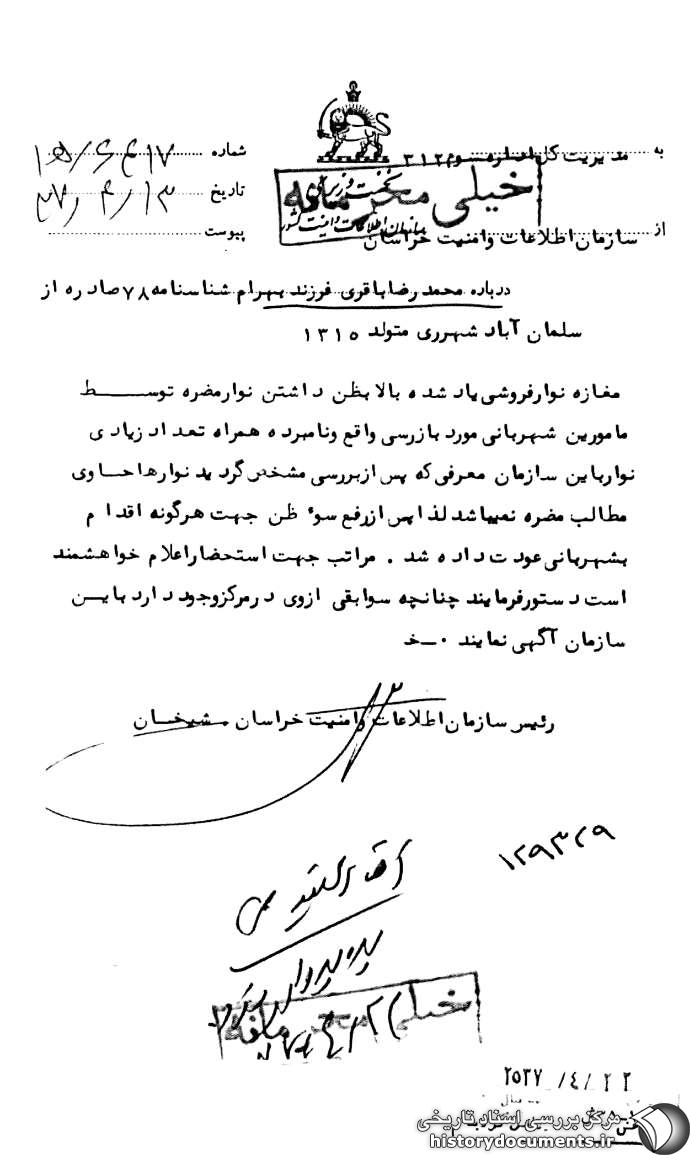 به مدیریت کل اداره سوم ۳۱۲
شماره ۱۵/۶۴۱۷
نخست وزیری
خیلی محرمانه
تاریخ ۳۷/۴/۱۳
سازمان اطلاعات و امنیت کشور
از سازمان اطلاعات و امنیت خراسان
پیوست
درباره محمد رضا باقری فرزند بهرام شناسنامه ۷۸ صادره از
سلمان آباد شهرری متولد ۱۳۱۵
مغازه نوارفروشی یاد شده بالا بظن داشتن نوار مضره توسط
مامورین شهربانی مورد بازرسی واقع و نامبرده همراه تعداد زیادی
نوار باین سازمان معرفی که پس از بررسی مشخص گردید نوارها حاوی
مطالب مضره نمیباشد لذا پس از رفع سوء ظن جهت هرگونه اقدام
بشهربانی عودت داده شد . مراتب جهت استحضار اعلام خواهشمند
است دستور فرمایند چنانچه سوابقی از وی در مرکز وجود دارد باین
سازمان آگهی نمایند ۰-خ
رئیس سازمان اطلاعات و امنیت خراسان شیخان
۱۲۹۳۲۹
خیلی محرمانه
۲۵۳۷/۴/۲۲
مرکز بررسی اسناد تاریخی
historydocuments.ir